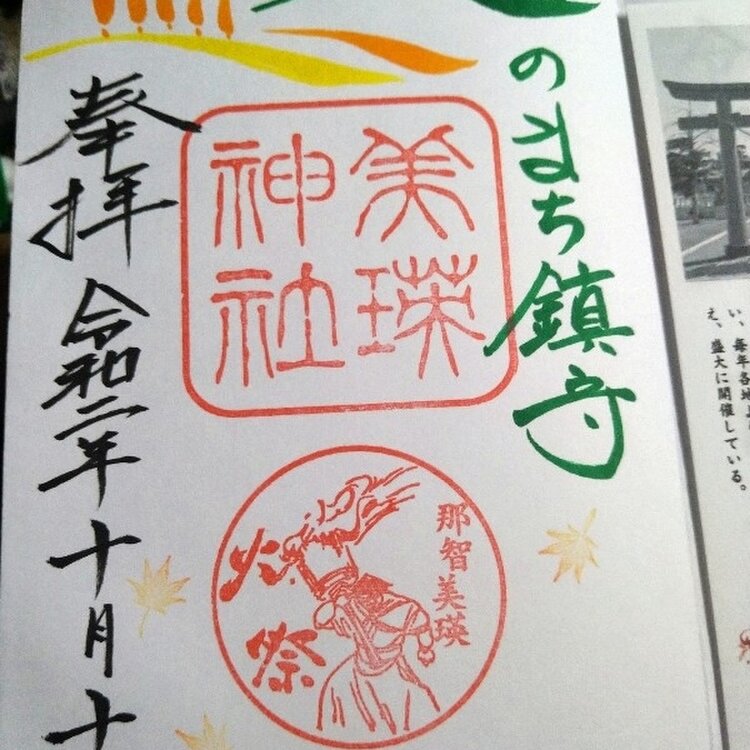 のまち鎮守
美瑛
神社
奉拝
令和二年十月十
那智美瑛
火祭
い、毎年各地よ
え、盛大に開催している。